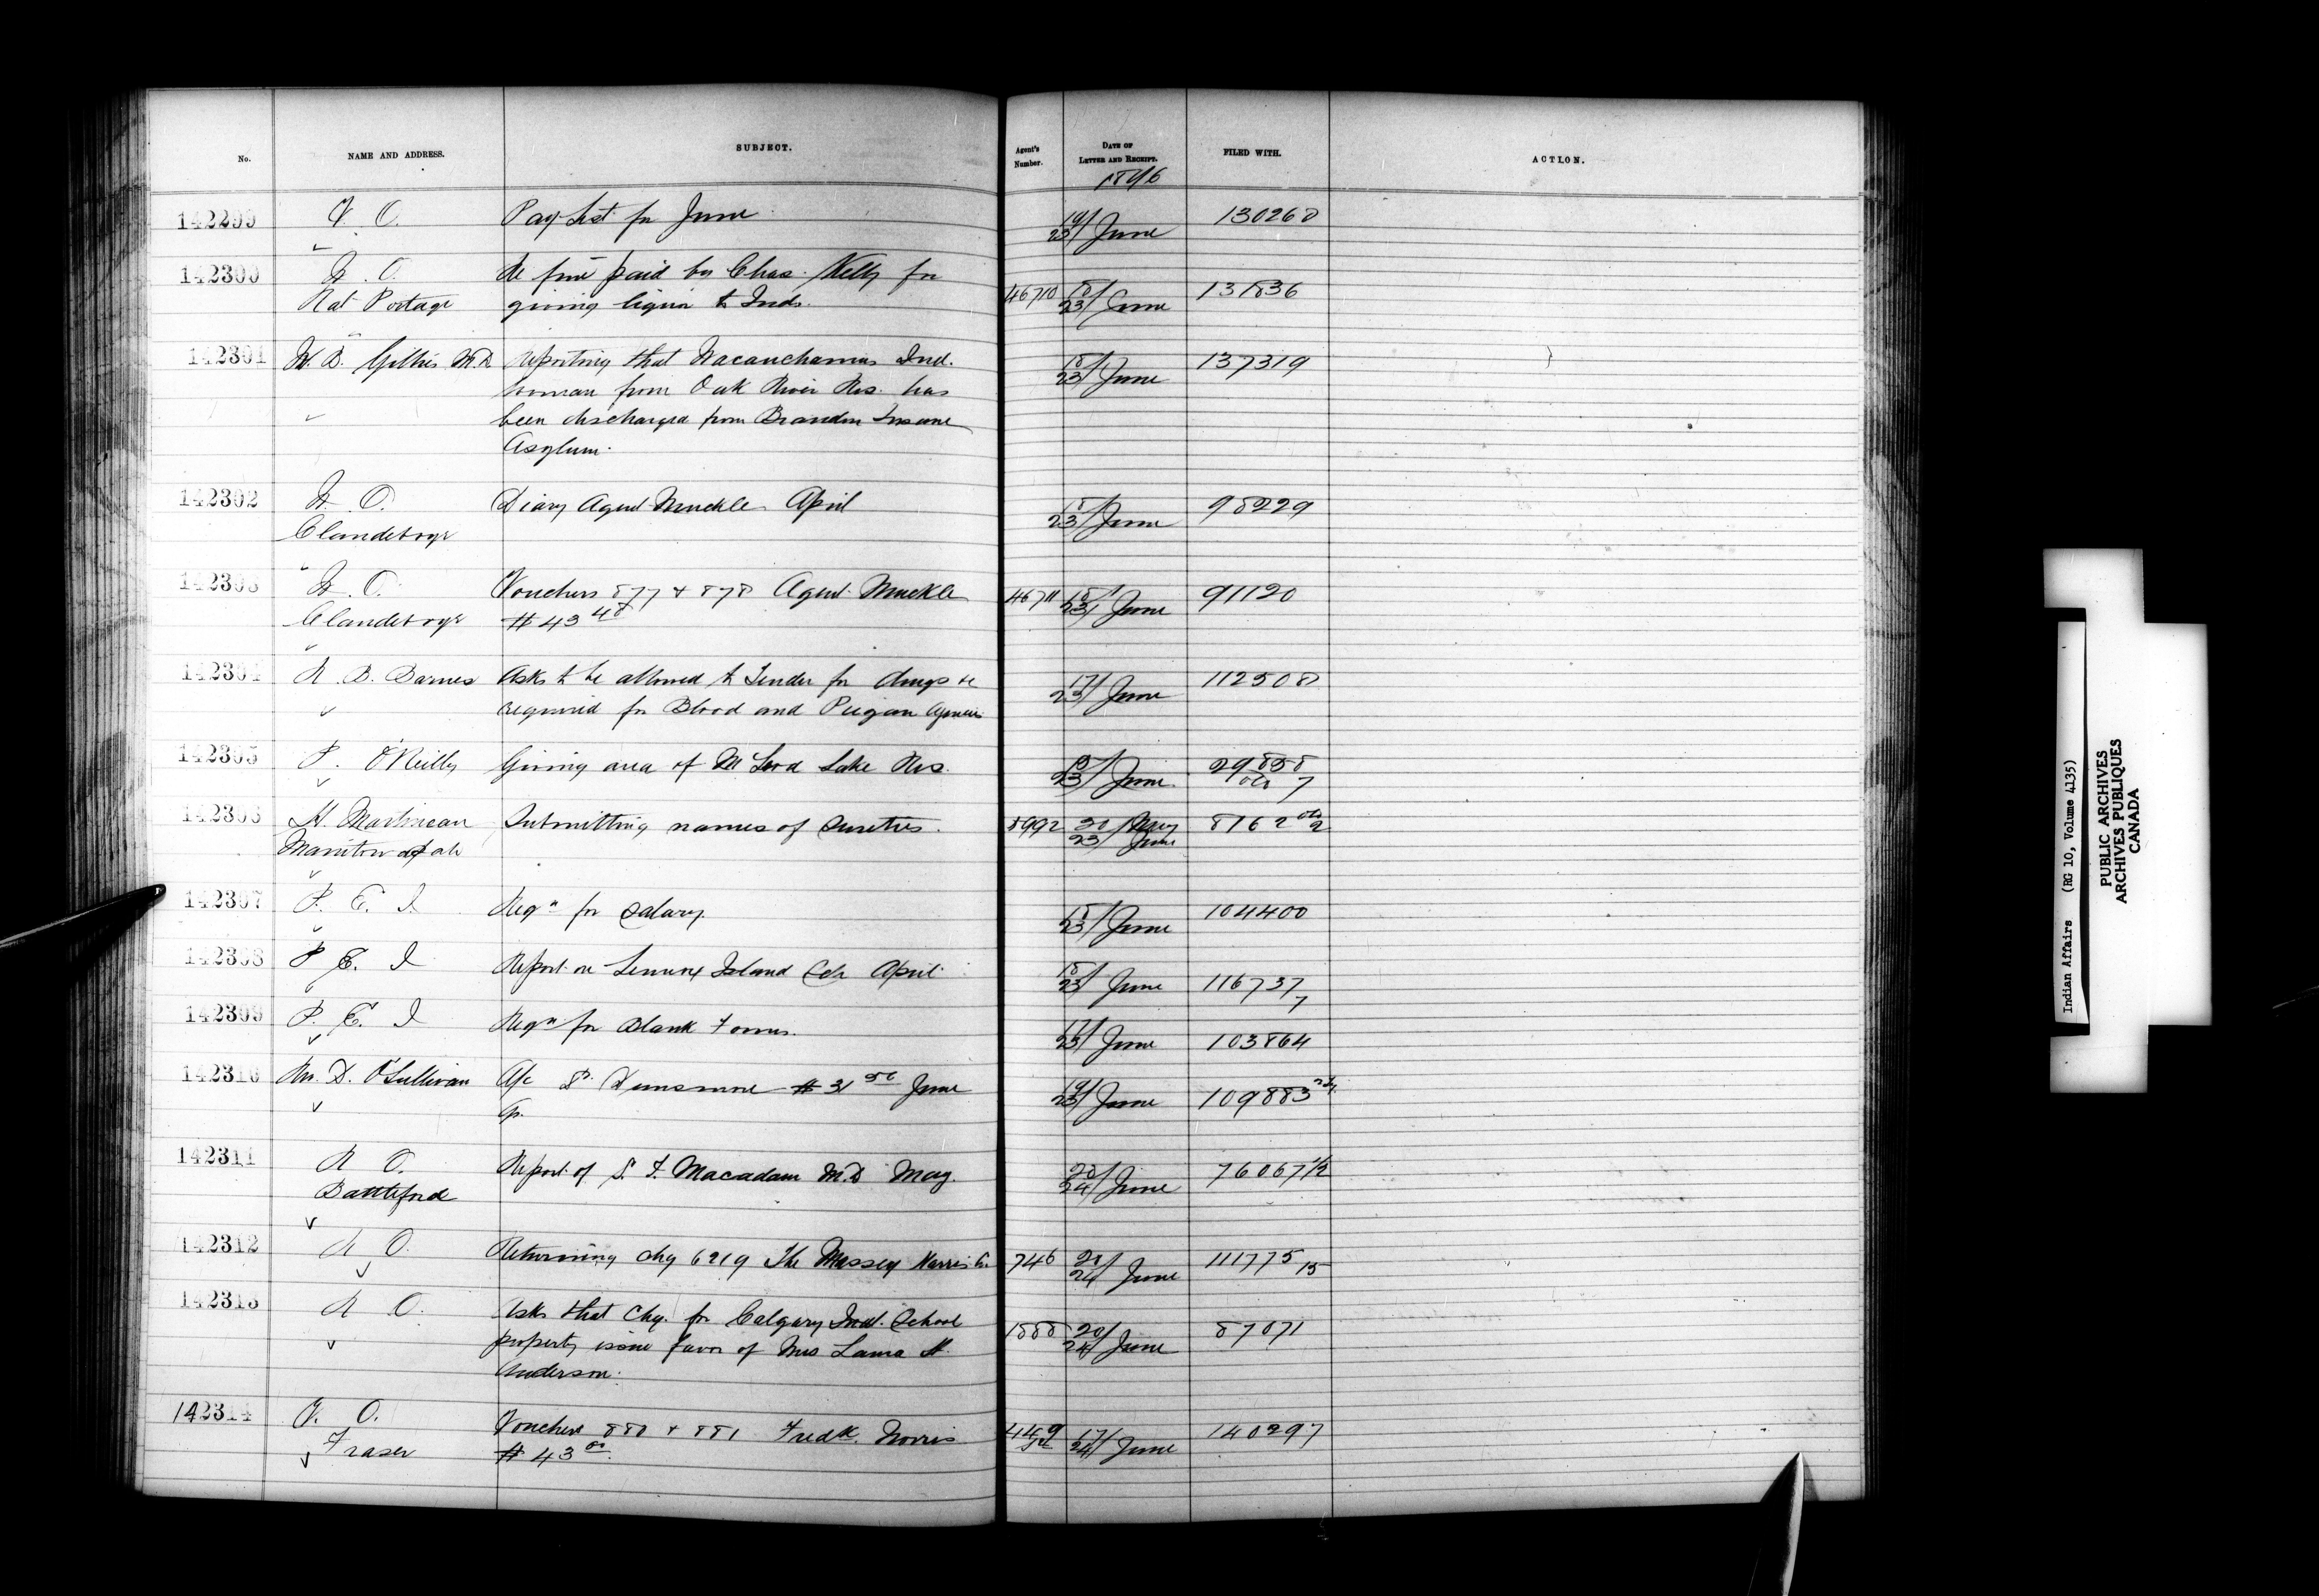 No.
NAME AND ADDRESS.
SUBJECT.
Agent's Number.
DATE OF LETTER AND RECEIPT.
FILED WITH.
ACTION.
1896
142299 V. O. Pay List for June 19/23 June 130268
142300 W. O. Re fine paid by Chas. Kelly for
Rat Portage giving liquor to Inds. 46710 18/23 June 131836
142301 Reporting that Ind. 18/23 June 137319
woman from Oak River Res. has
been discharged from Brandon Insane
Asylum.
142302 W. O. Diary Agent Muckle April 18/23 June 98229
Clandeboye
142303 W. O. Vouchers 877 & 878 Agent Muckle 46711 18/23 June 91120
Clandeboye $43 48
142304 R. B. Barnes Asks to be allowed to Tender for drugs &c 17/23 June 112508
required for Blood and Piegan Agencies
142305 P. O'Reilly Giving area of McLeod Lake Res. 23 June 29858
7
142306 H. Martineau Submitting names of Sureties. 20 May 8162
Manitowapah 23 June 2
142307 P. E. I. Reqn for Salary. 18/23 June 104400
142308 P. E. I. Report on Lennox Island Sch April 18/23 June 116737
7
142309 P. E. I. Reqn for Blank Forms. 17/23 June 103864
142310 Wm. D. O'Sullivan A/c Dr. Dunsmore $31 50 June 19/23 June 109883
Qr.
142311 R. O. Report of S. T. Macadam M.D. May. 20/24 June 76067 1/2
Battleford
142312 R. O. Returning chq 6219 The Massey Harris Co. 746 20/24 June 111775 15
142313 R. O. Asks that chq. for Calgary Ind. School 1888 20/24 June 87071
property issue favor of Mrs Laura H.
Anderson.
142314 V. O. Vouchers 880 & 881 Fredk. Norris 449 17/24 June 140297
Fraser $43 00
Indian Affairs (RG 10, Volume 4135)
PUBLIC ARCHIVES
ARCHIVES PUBLIQUES
CANADA